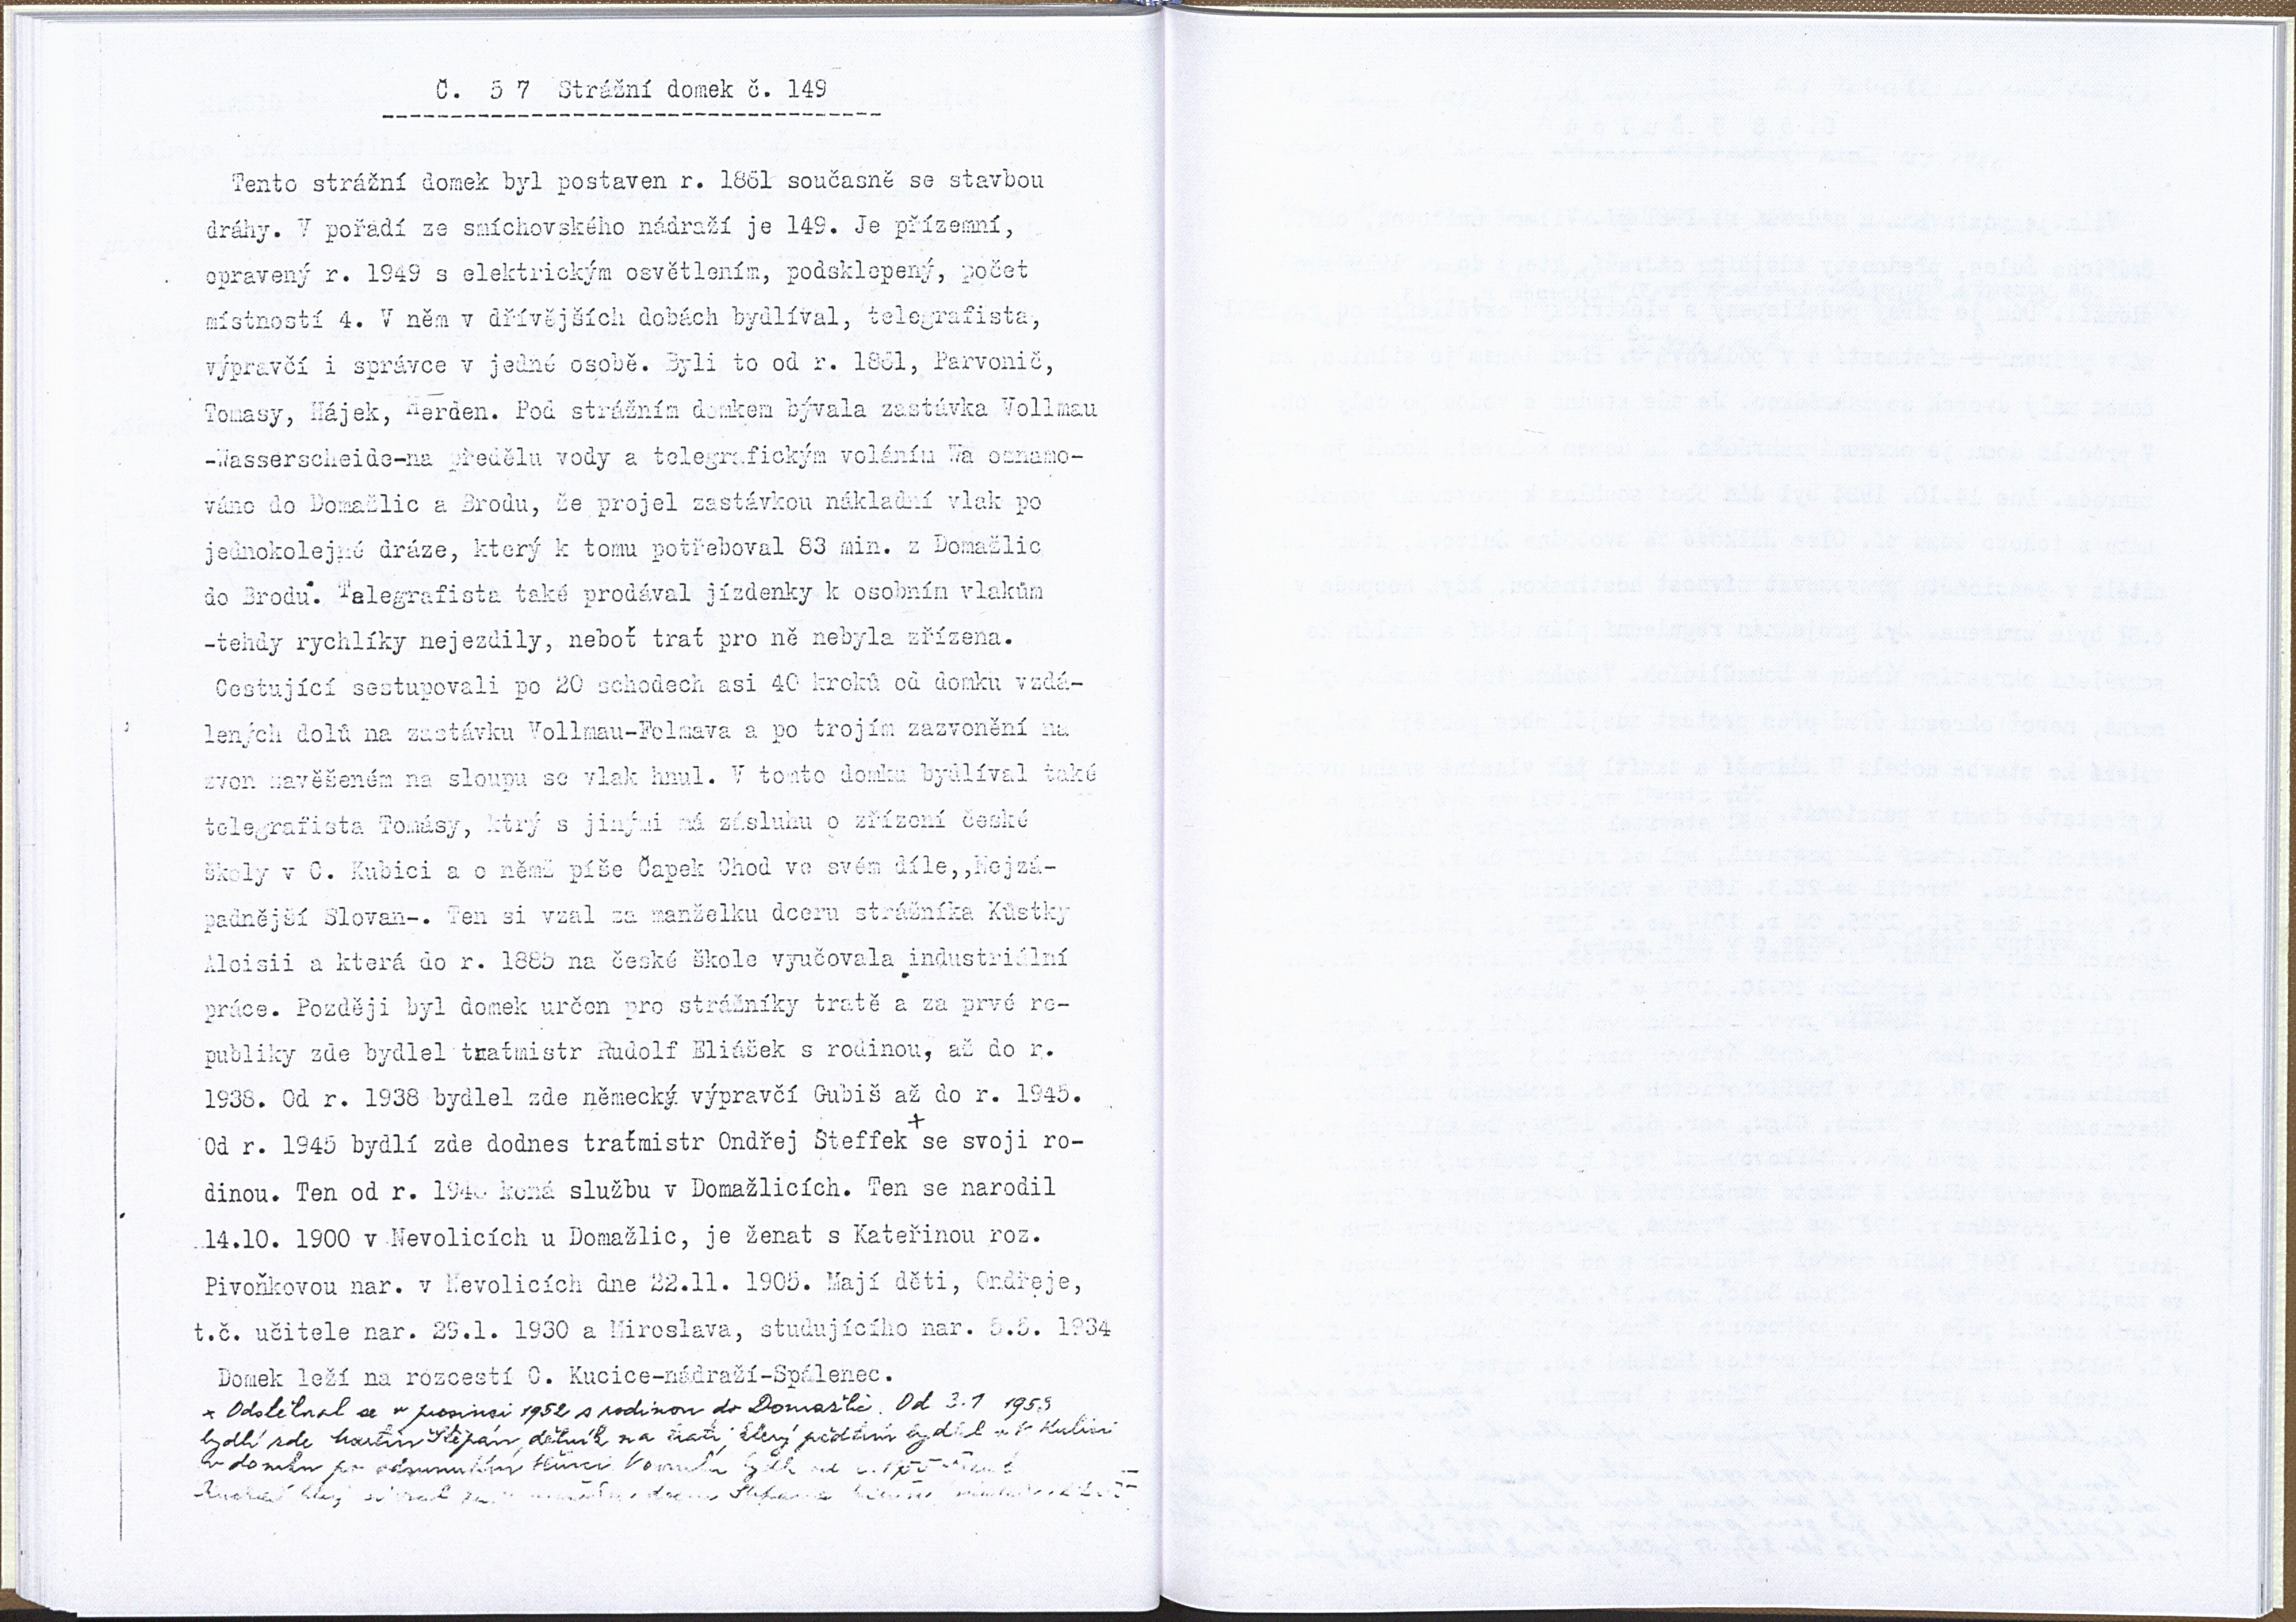 Č. 5 7 Strážní domek č. 149
Tento strážní domek byl postaven r. 1861 současně se stavbou
dráhy. V pořadí ze smíchovského nádraží je 149. Je přízemní,
opravený r. 1949 s elektrickým osvětlením, podsklepený, počet
místností 4. V něm v dřívějších dobách bydlíval, telegrafista,
výpravčí i správce v jedné osobě. Byli to od r. 1861, Parvonič,
Tomasy, Hájek, Herden. Pod strážním domkem bývala zastávka Vollmau
-Wasserscheide-na předělu vody a telegrafickým voláním Wa oznamo-
váno do Domažlic a Brodu, že projel zastávkou nákladní vlak po
jednokolejné dráze, který k tomu potřeboval 83 min. z Domažlic
do Brodu. Talegrafista také prodával jízdenky k osobním vlakům
-tehdy rychlíky nejezdily, neboť trať pro ně nebyla zřízena.
Cestující sestupovali po 20 schodech asi 40 kroků od domku vzdá-
lených dolů na zastávku Vollmau-Folmava a po trojím zazvonění na
zvon zavěšeném na sloupu se vlak hnul. V tomto domku bydlíval také
telegrafista Tomásy, ktrý s jinými má zásluhu o zřízení české
školy v C. Kubici a o němž píše Čapek Chod ve svém díle,,Nejzá-
padnější Slovan-. Ten si vzal za manželku dceru strážníka Kůstky
Aloisii a která do r. 1885 na české škole vyučovala industriální
práce. Později byl domek určen pro strážníky tratě a za prvé re-
publiky zde bydlel traťmistr Rudolf Eliášek s rodinou, až do r.
1938. Od r. 1938 bydlel zde německý výpravčí Gubiš až do r. 1945.
Od r. 1945 bydlí zde dodnes traťmistr Ondřej Šteffek + se svoji ro-
dinou. Ten od r. koná službu v Domažlicích. Ten se narodil
14.10. 1900 v Nevolicích u Domažlic, je ženat s Kateřinou roz.
Pivoňkovou nar. v Nevolicích dne 22.11. 1905. Mají děti, Ondřeje,
t.č. učitele nar. 29.1. 1930 a Miroslava, studujícího nar. 5.5. 1934
Domek leží na rozcestí C. Kucice-nádraží-Spálenec.
+ Odstěhoval se v prosinci 1952 s rodinou do Domažlic. Od 3.1 1953
bydlí zde Martin Štěpán, dělník na trati, který předtím bydlel v Kubici
v domku po odsunutém